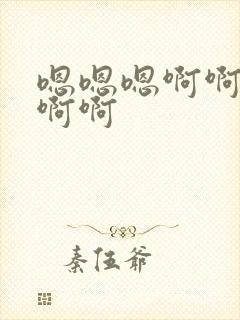 嗯嗯嗯啊啊
啊啊
秦伍爷